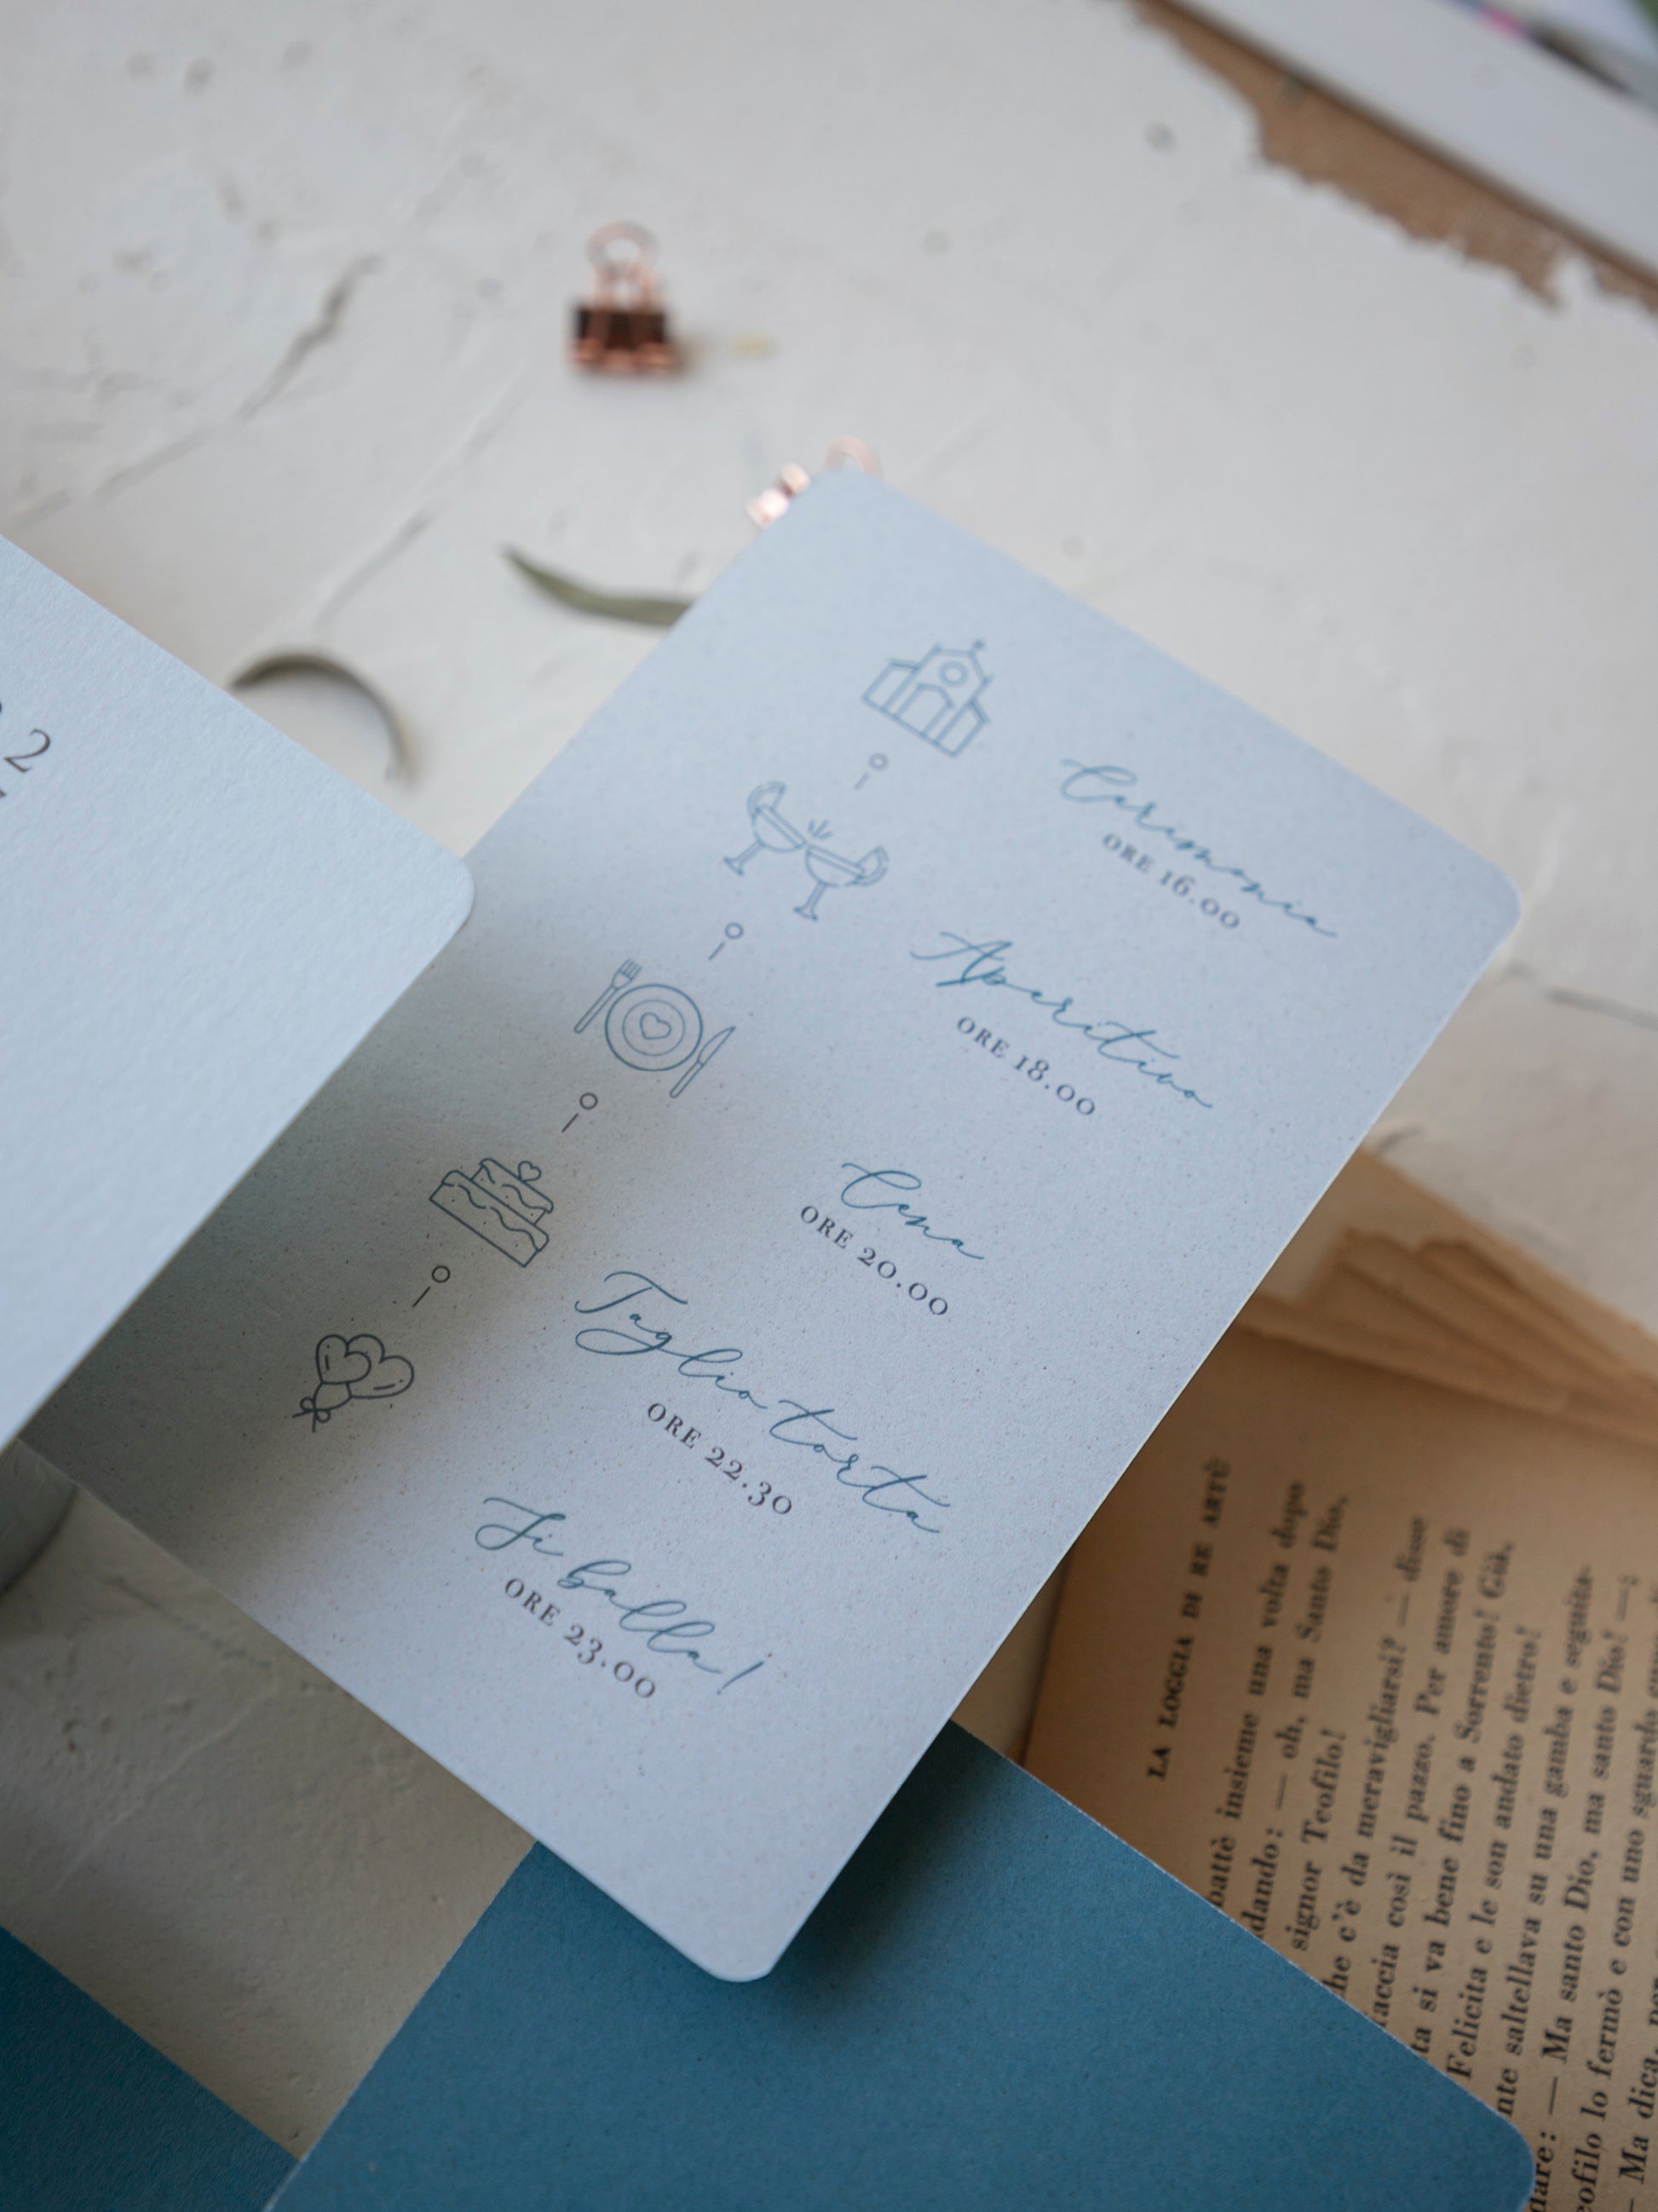 2
Cerimonia
ORE 16.00
Aperitivo
ORE 18.00
Cena
ORE 20.00
Taglio torta
ORE 22.30
Si balla!
ORE 23.00
LA LOGGIA DI RE ARTÙ
battè insieme una volta dopo
dando: — oh, ma Santo Dio,
signor Teofilo!
he c'è da meravigliarsi? — disse
faccia così il pazzo. Per amore di
ta si va bene fino a Sorrento! Già,
Felicita e le son andato dietro!
nte saltellava su una gamba e seguita-
are: — Ma santo Dio, ma santo Dio! —;
eofilo lo fermò e con uno sguardo
— Ma dica, per